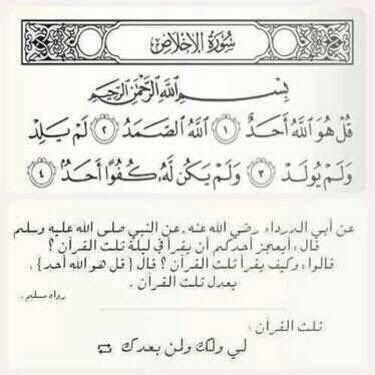 سُورَةُ الإِخْلَاصِ
بِسْمِ اللَّهِ الرَّحْمَٰنِ الرَّحِيمِ
قُلْ هُوَ اللَّهُ أَحَدٌ ١ اللَّهُ الصَّمَدُ ٢ لَمْ يَلِدْ
وَلَمْ يُولَدْ ٣ وَلَمْ يَكُن لَّهُ كُفُوًا أَحَدٌ ٤
عن أبي الدرداء رضي الله عنه, عن النبي صلى الله عليه وسلم
قال : أيعجز أحدكم أن يقرأ في ليلة ثلث القرآن ؟
قالوا : وكيف يقرأ ثلث القرآن ؟ قال { قل هو الله أحد } ,
يعدل ثلث القرآن .
رواه مسلم .
ثلث القرآن :
لي ولك ولمن بعدك